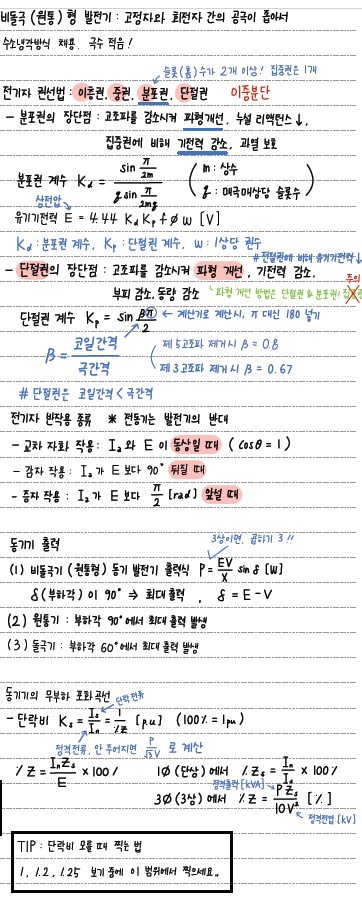 비돌극 (원통) 형 발전기 : 고정자와 회전자 간의 공극이 좁아서
수소냉각방식 채용. 극수 적음!
슬롯(홈)수가 2개 이상! 집중권은 1개
전기자 권선법 : 이층권, 중권, 분포권, 단절권 이중분단
- 분포권의 장단점 : 고조파를 감소시켜 파형개선, 누설 리액턴스↓,
집중권에 비해 기전력 감소, 과열 보호
분포권 계수 Kd = sin π/2m / q sin π/2mq ( m : 상수
q : 매극매상당 슬롯수 )
상전압
유기기전력 E = 4.44 Kd Kp f Φ w [V]
Kd : 분포권 계수, Kp : 단절권 계수, w : 1상당 권수
# 전절권에 비해 유기기전력↓
- 단절권의 장단점 : 고조파를 감소시켜 파형 개선, 기전력 감소.
주의
부피 감소, 동량 감소 파형 개선 방법은 단절권 & 분포권!
단절권 계수 Kp = sin βπ/2 ← 계산기로 계산시, π 대신 180 넣기
β = 코일간격/극간격 ( 제 5고조파 제거시 β = 0.8
제 3고조파 제거시 β = 0.67
# 단절권은 코일간격 < 극간격
전기자 반작용 종류 * 전동기는 발전기의 반대
- 교차 자화 작용 : Ia와 E 이 동상일 때 ( cosθ = 1 )
- 감자 작용 : Ia가 E 보다 90° 뒤질 때
- 증자 작용 : Ia가 E 보다 π/2 [rad] 앞설 때
동기기 출력
3상이면, 곱하기 3 !!
(1) 비돌극기 (원통형) 동기 발전기 출력식 P = EV/X sin δ [W]
δ(부하각) 이 90° ⇒ 최대 출력, δ = E - V
(2) 원통기 : 부하각 90°에서 최대 출력 발생
(3) 돌극기 : 부하각 60°에서 최대 출력 발생
동기기의 무부하 포화곡선
단락전류
- 단락비 Ks = Is/In = 1/%Z [p.u] (100% = 1pu)
정격전류, 안 주어지면 P/√3V 로 계산
%Z = InZs/E × 100% 1Φ (단상) 에서 %Zs = In/Is × 100%
정격출력 [kVA]
3Φ (3상) 에서 %Z = PZs/10V² [%]
정격전압 [kV]
TIP : 단락비 모를 때 찍는 법
1, 1.2, 1.25 보기 중에 이 범위에서 찍으세요.